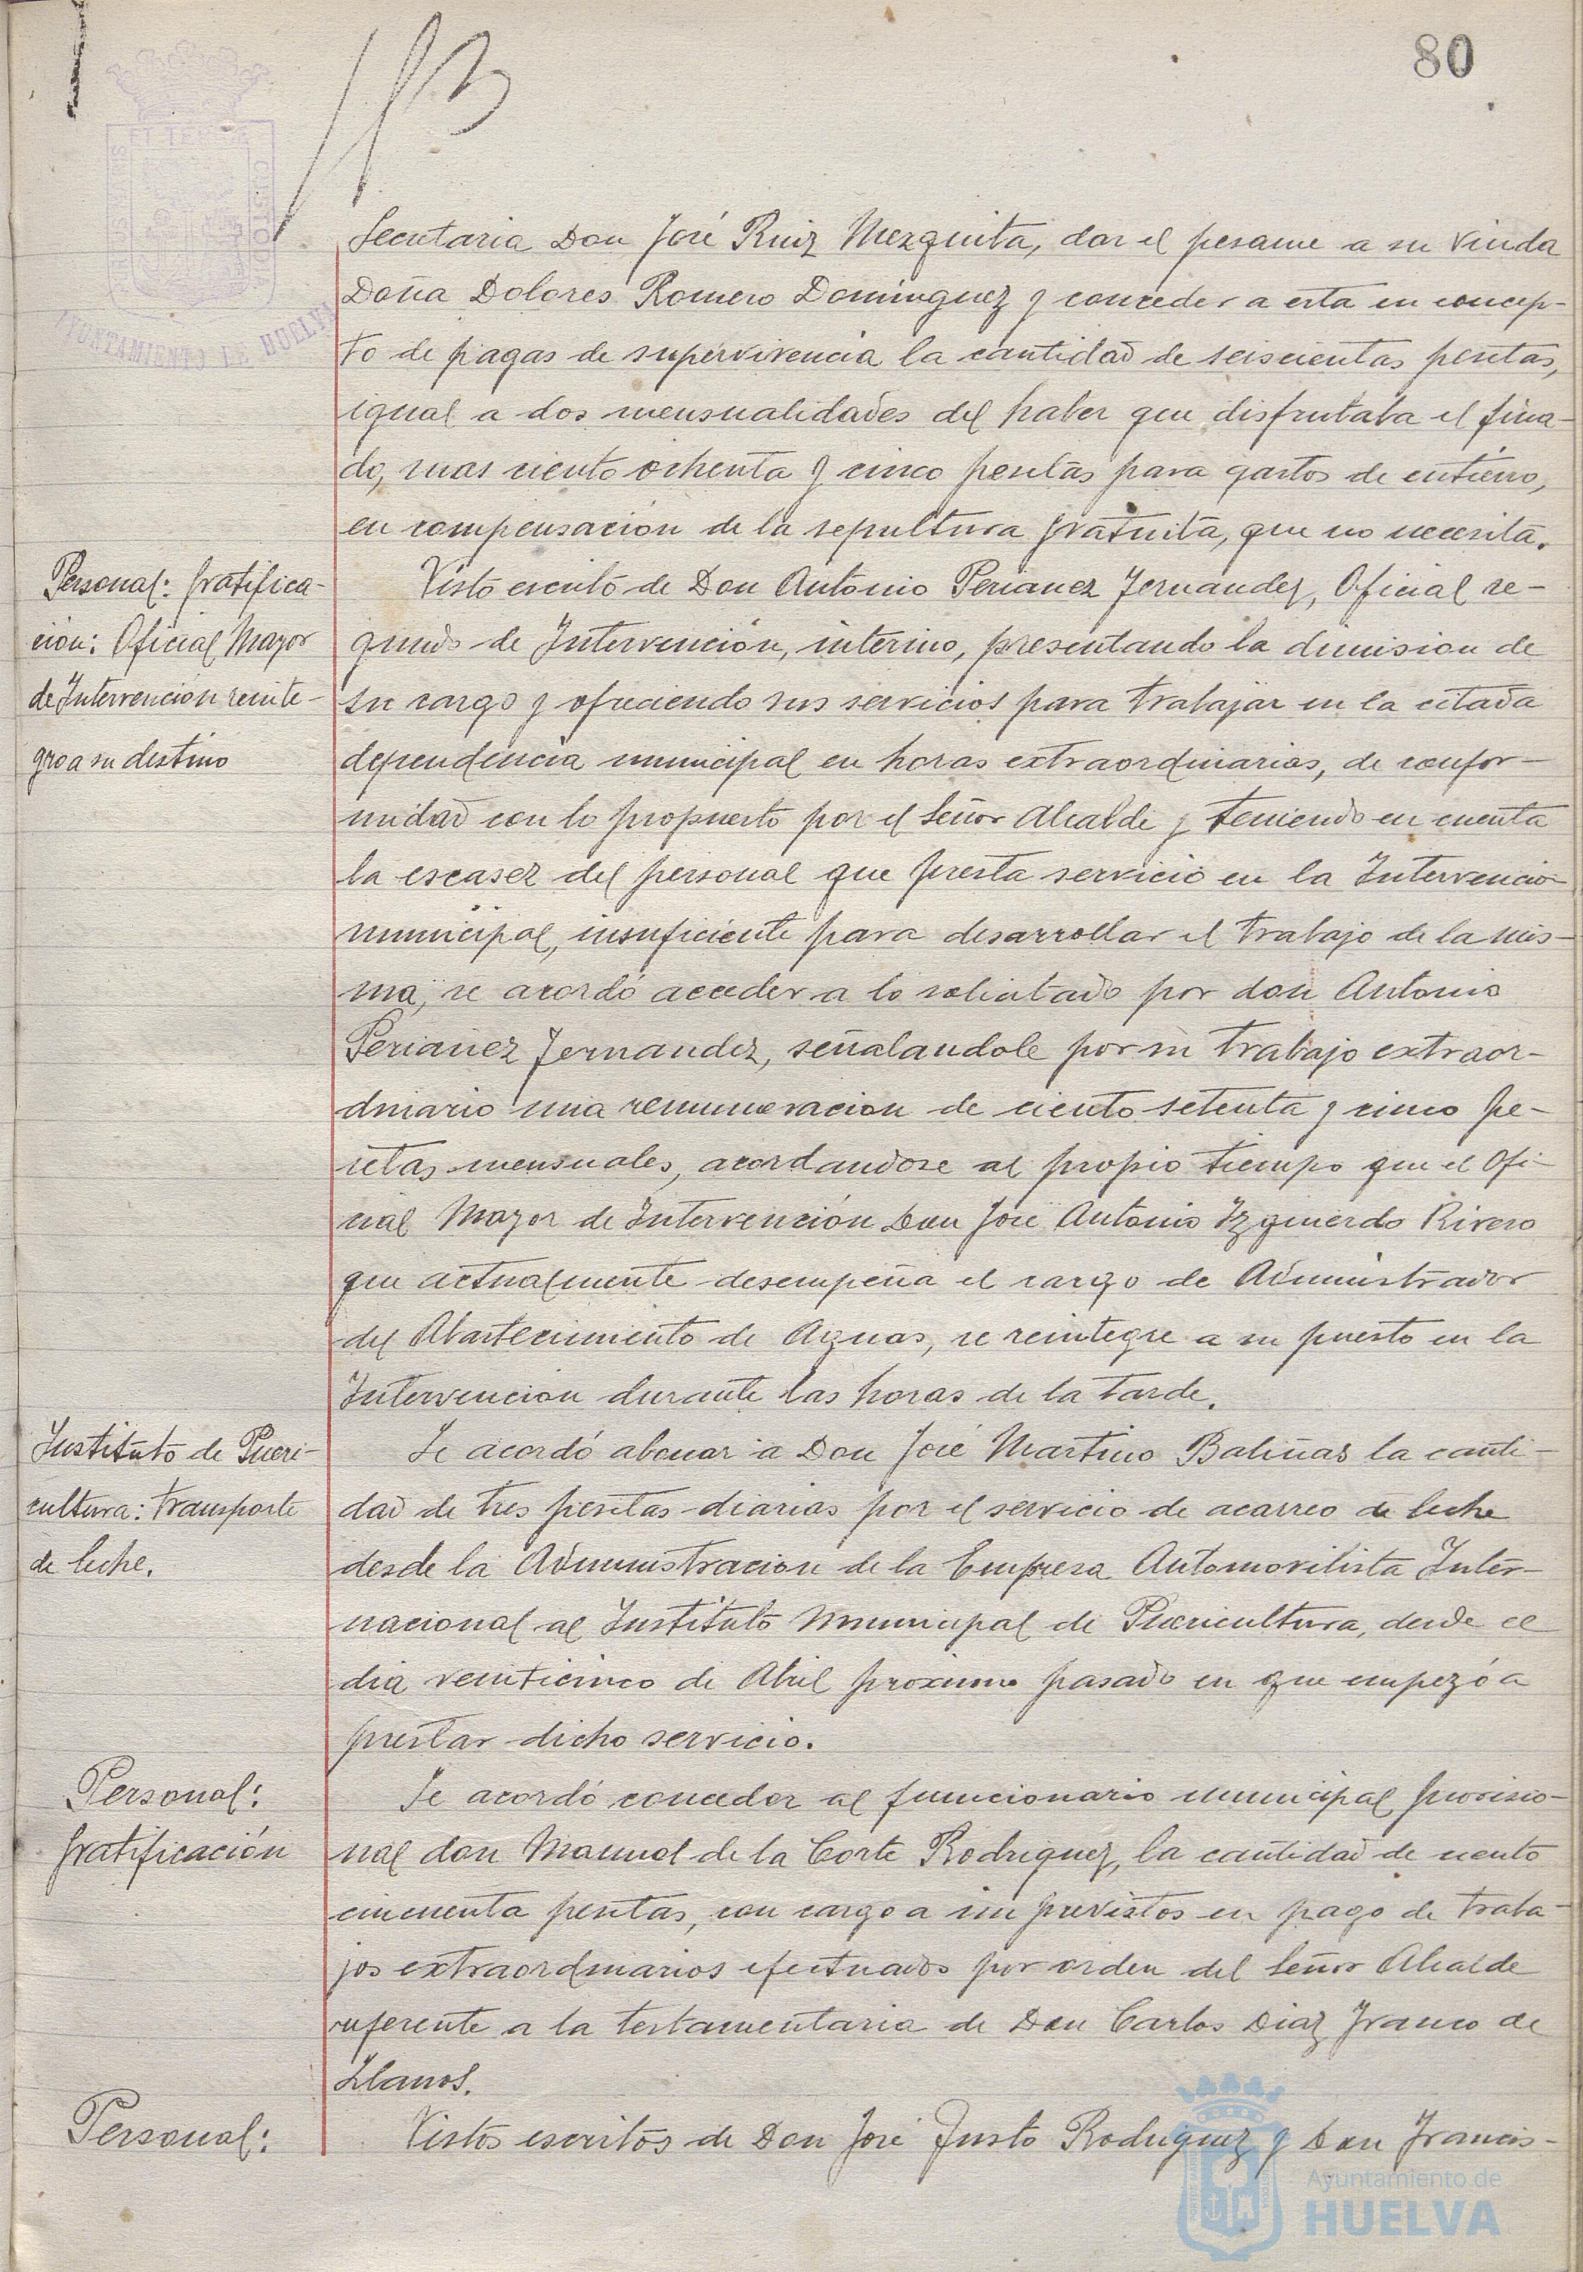 80
Secretaria Don José Ruiz Mezquita, dar el pesame a su viuda
Doña Dolores Romero Dominguez y conceder a esta en concep-
to de pagas de supervivencia la cantidad de seiscientas pesetas,
igual a dos mensualidades del haber que disfrutaba el fina-
do, mas ciento ochenta y cinco pesetas para gastos de entierro,
en compensación de la sepultura gratuita, que no necesita.
Personal: gratifica-
ción: Oficial Mayor
de Intervención reinte-
gro a su destino
Visto escrito de Don Antonio Perianez Fernandez, Oficial se-
gundo de Intervención, interino, presentando la dimision de
su cargo y ofreciendo sus servicios para trabajar en la citada
dependencia municipal en horas extraordinarias, de confor-
midad con lo propuesto por el Señor Alcalde y teniendo en cuenta
la escasez del personal que presta servicio en la Intervencion
municipal, insuficiente para desarrollar el trabajo de la mis-
ma, se acordó acceder a lo solicitado por don Antonio
Periañez Fernandez, señalandole por su trabajo extraor-
dinario una remuneracion de ciento setenta y cinco pe-
setas mensuales, acordandose al propio tiempo que el Ofi-
cial Mayor de Intervención Don José Antonio Izquierdo Rivero
que actualmente desempeña el cargo de Administrador
del Abastecimiento de Aguas, se reintegre a su puesto en la
Intervencion durante las horas de la tarde.
Instituto de Pueri-
cultura: transporte
de leche.
Se acordó abonar a Don José Martino Baliñas la canti-
dad de tres pesetas diarias por el servicio de acarreo de leche
desde la Administracion de la Empresa Automovilista Inter-
nacional al Instituto Municipal de Puericultura, desde el
dia veinticinco de Abril proximo pasado en que empezó a
prestar dicho servicio.
Personal:
gratificación
Se acordó conceder al funcionario municipal provisio-
nal don Manuel de la Corte Rodriguez, la cantidad de ciento
cincuenta pesetas, con cargo a imprevistos en pago de traba-
jos extraordinarios efectuados por orden del Señor Alcalde
referente a la testamentaria de Don Carlos Diaz Franco de
Llanos.
Personal:
Vistos escritos de Don José Justo Rodriguez y Don Francis-
Ayuntamiento de
HUELVA
AYUNTAMIENTO DE HUELVA